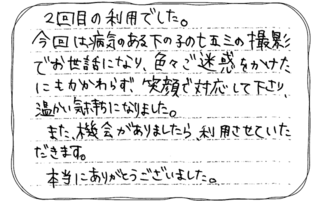 2回目の利用でした。
今回は病気のある下の子の七五三の撮影
でお世話になり、色々ご迷惑をかけた
にもかかわらず、笑顔で対応して下さり、
温かい気持ちになりました。
また、機会がありましたら、利用させていた
だきます。
本当にありがとうございました。